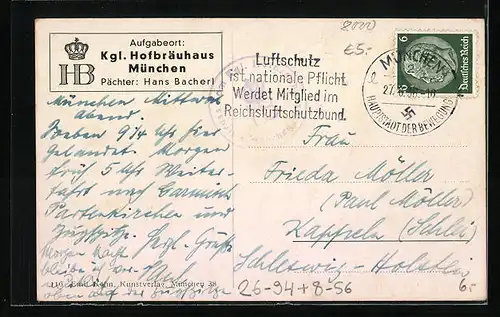 8000
€5.-
Aufgabeort:
Kgl. Hofbräuhaus
München
Pächter: Hans Bacherl
HB
Luftschutz
ist nationale Pflicht
Werdet Mitglied im
Reichsluftschutzbund.
MÜNCHEN
27.
HAUPTSTADT DER BEWEGUNG
6
Deutsches Reich
München Mittwoch
Abend.
Soeben 9¼ Uhr hier
gelandet. Morgen
früh 5 Uhr Weiter-
fahrt nach Garmisch
Partenkirchen und
Zugspitze. Hrzl. Grüße
Morgen Nacht
bleibe ich
oben auf der Zugspitze
Frau
Frieda Möller
(Paul Möller)
Kappeln (Schlei)
Schleswig-Holstein
Emil Köhn, Kunstverlag, München 38
26-94+8-56
6.-